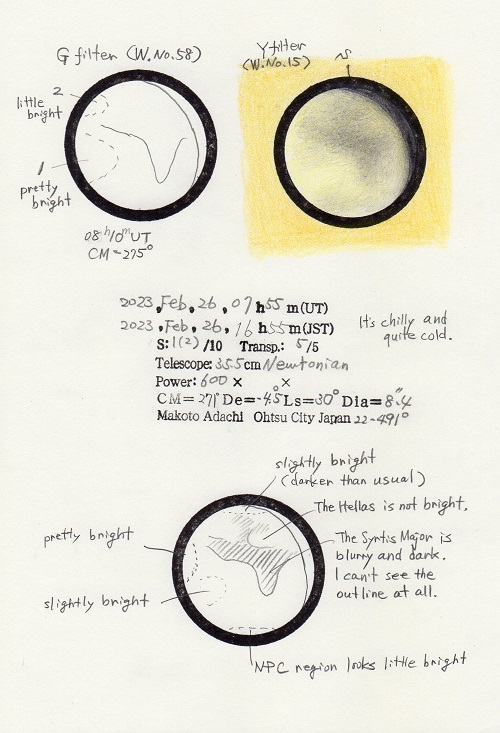 G filter (W.No.58)
2
little
bright
1
pretty
bright
08h10mUT
CM=275°
Y filter
(W.No.15)
S
2023,Feb,26,07h55m(UT)
2023,Feb,26,16h55m(JST)
S:1(2)/10 Transp.: 5/5
Telescope:35.5cm Newtonian
Power:600× ×
CM=271° De=-4.5° Ls=30° Dia=8".4
Makoto Adachi Ohtsu City Japan 22-491°
It's chilly and
quite cold.
slightly bright
(darker than usual)
The Hellas is not bright.
The Syrtis Major is
blurry and dark.
I can't see the
outline at all.
pretty bright
slightly bright
NPC region looks little bright